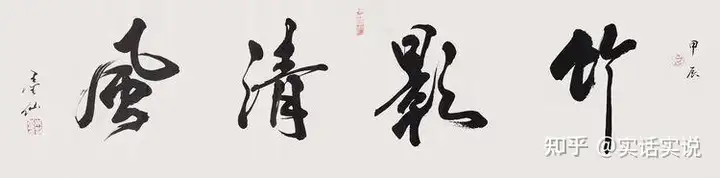 甲辰
竹影清風
知乎 @实话实说